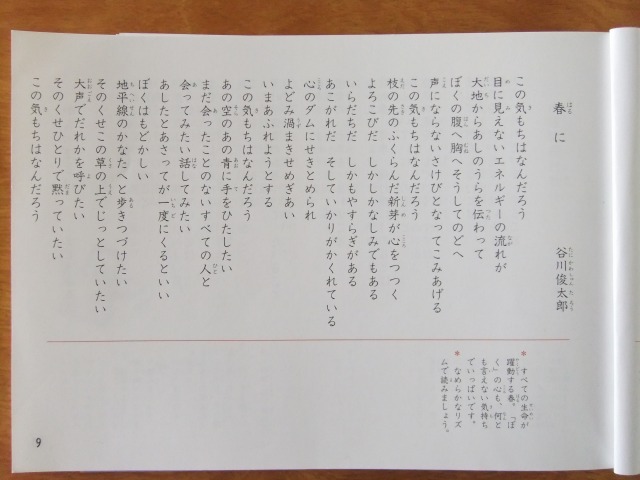 春に
谷川俊太郎
この気もちはなんだろう
目に見えないエネルギーの流れが
大地からあしのうらを伝わって
ぼくの腹へ胸へそうしてのどへ
声にならないさけびとなってこみあげる
この気もちはなんだろう
枝の先のふくらんだ新芽が心をつつく
よろこびだ しかしかなしみでもある
いらだちだ しかもやすらぎがある
あこがれだ そしていかりがかくれている
心のダムにせきとめられ
よどみ渦まきせめぎあい
いまあふれようとする
この気もちはなんだろう
あの空のあの青に手をひたしたい
まだ会ったことのないすべての人と
会ってみたい話してみたい
あしたとあさってが一度にくるといい
ぼくはもどかしい
地平線のかなたへと歩きつづけたい
そのくせこの草の上でじっとしていたい
大声でだれかを呼びたい
そのくせひとりで黙っていたい
この気もちはなんだろう
*すべての生命が
躍動する春。「ぼ
く」の心も、何と
も言えない気持ち
でいっぱいです。
*なめらかなリズ
ムで読みましょう。
9